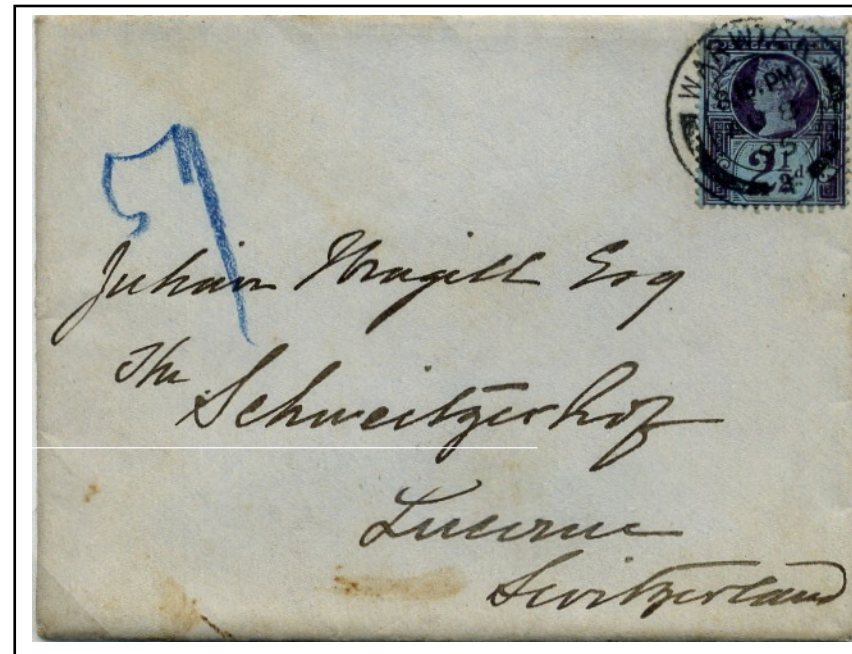 WARWICK
PM
2½d
Julian Esq
The
Schweitzerhof
Lucerne
Switzerland